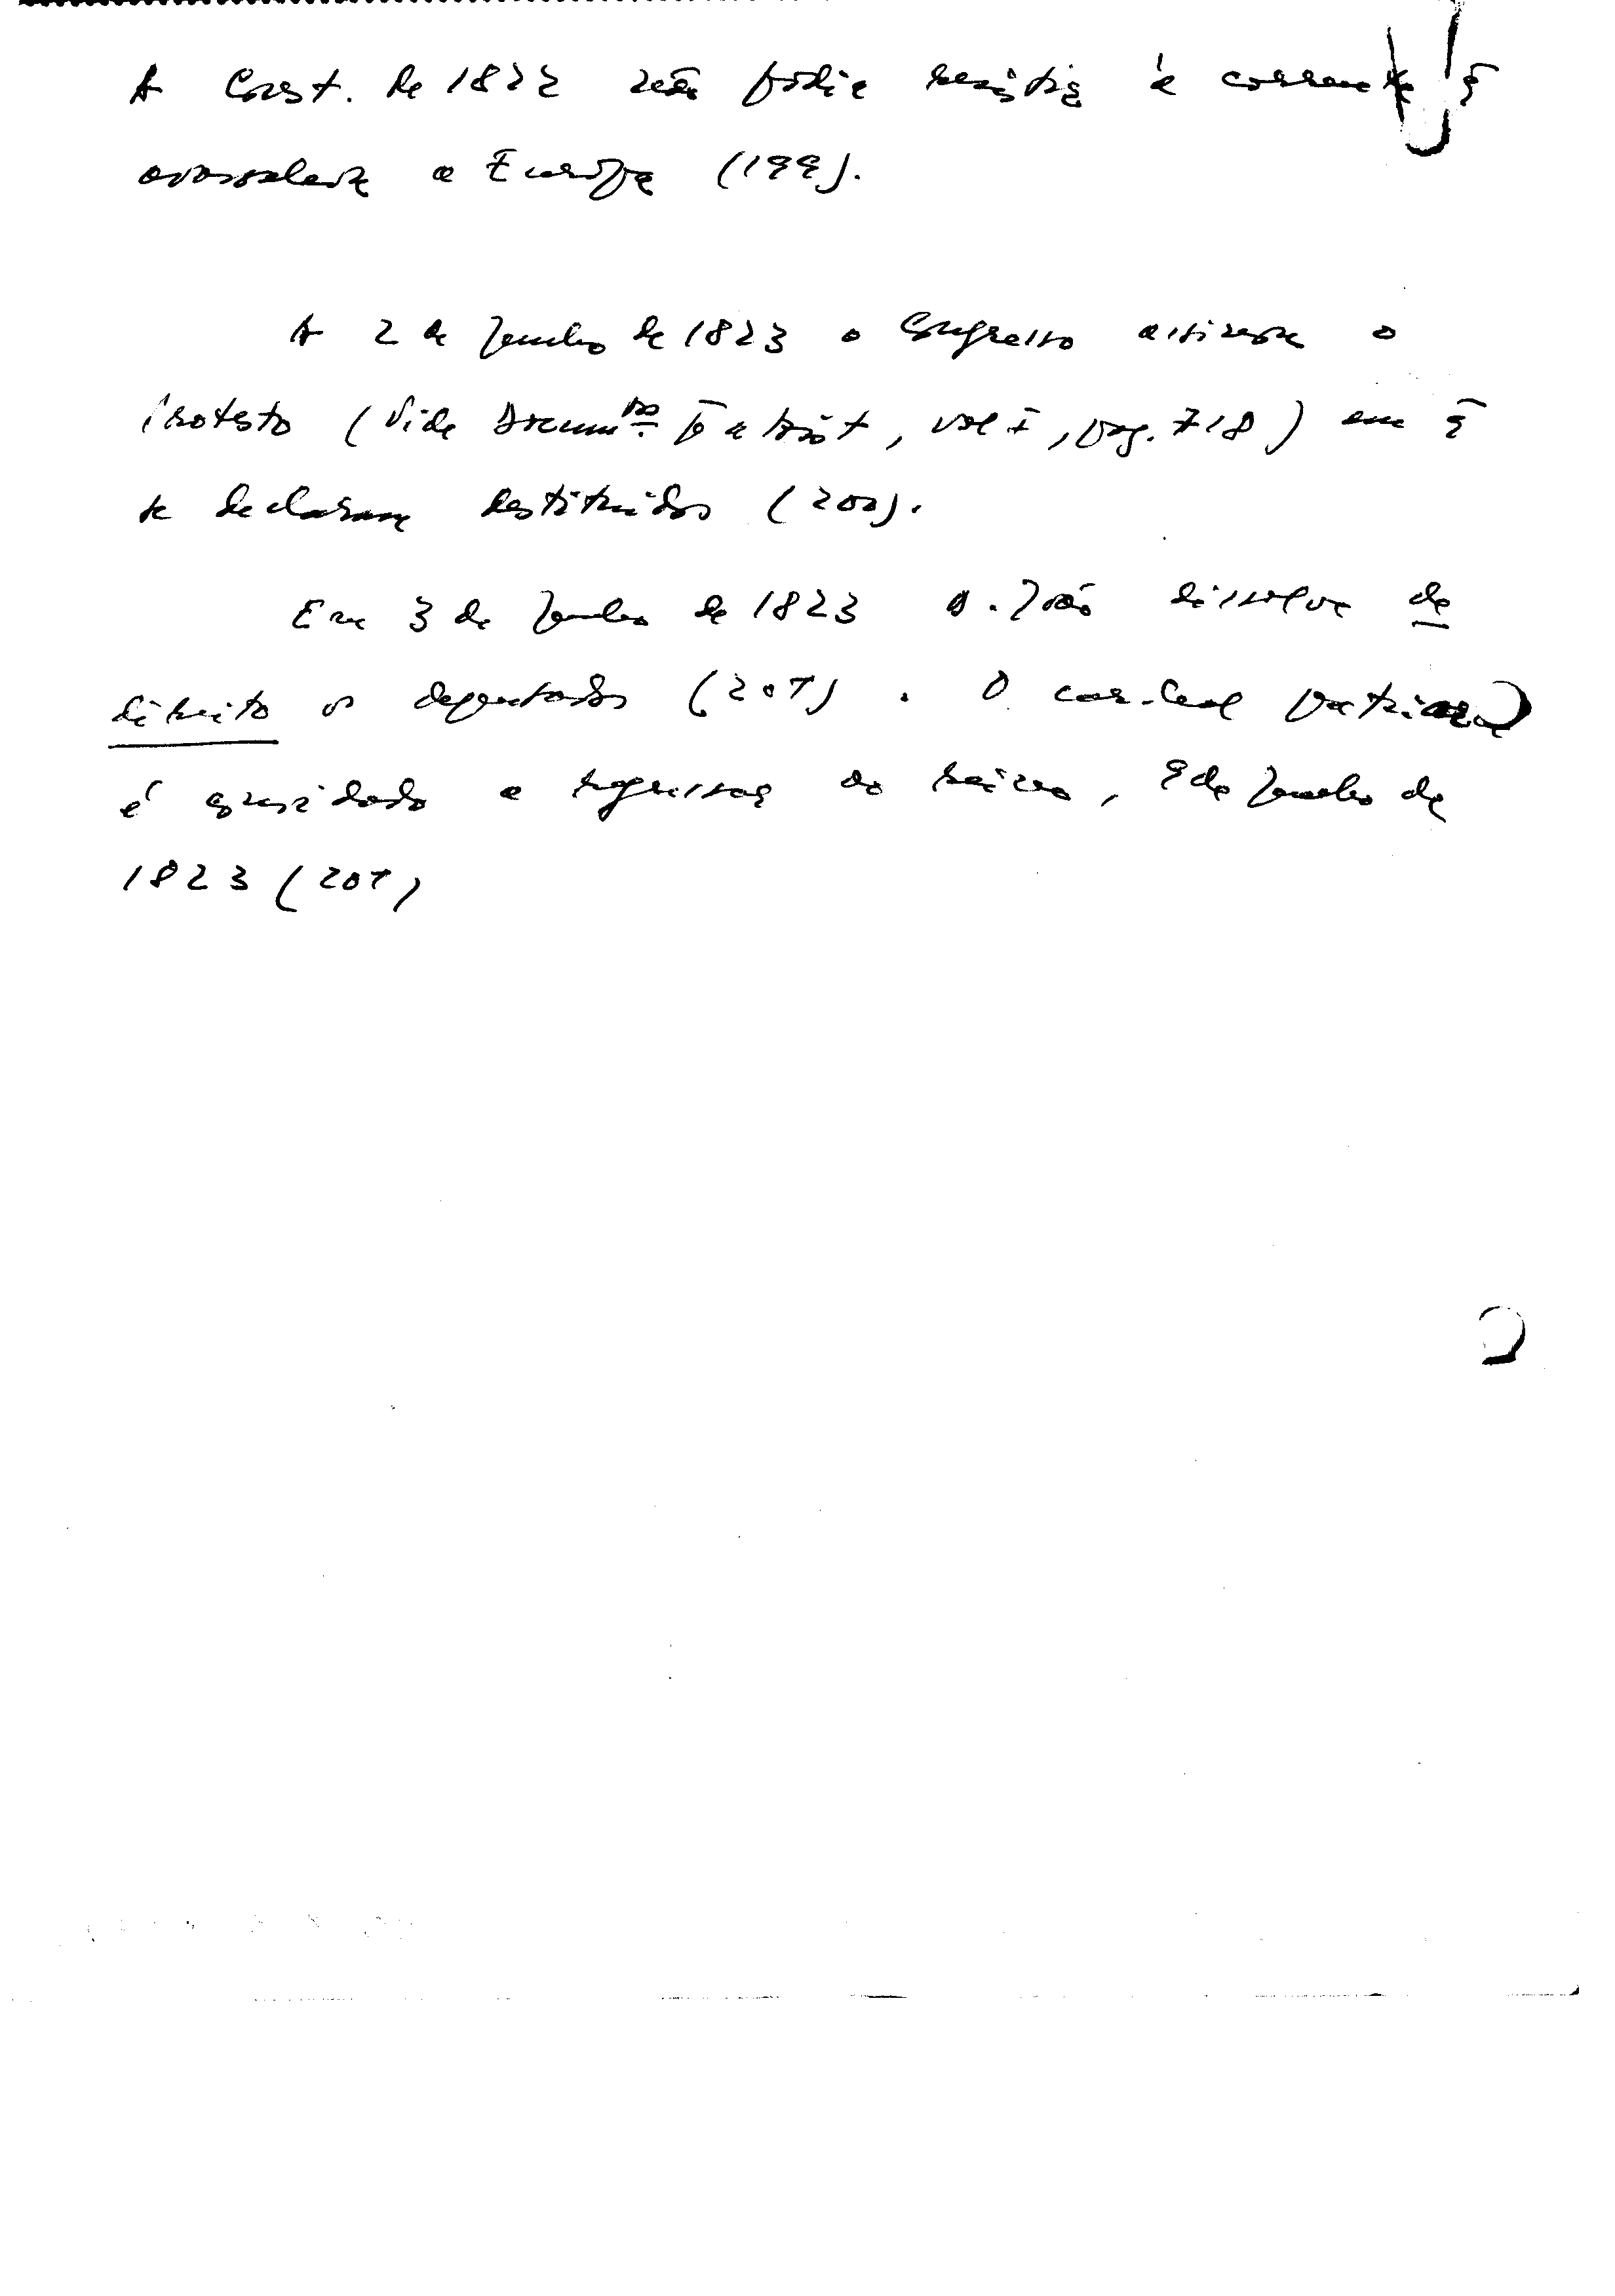 A Const. de 1822 não podia resistir à corrente q̄
avassalava a Europa (199).
A 2 de Junho de 1823 o Congresso assinava o
Protesto (Vide Docum.tos p̄ a Hist, vol I, pag. 718) em q̄
se declaram destituídos (200).
Em 3 de Junho de 1823 D. João dissolve de
direito os deputados (201). O cardeal patriarca
é convidado a regressar ao reino, 9 de Junho de
1823 (201)